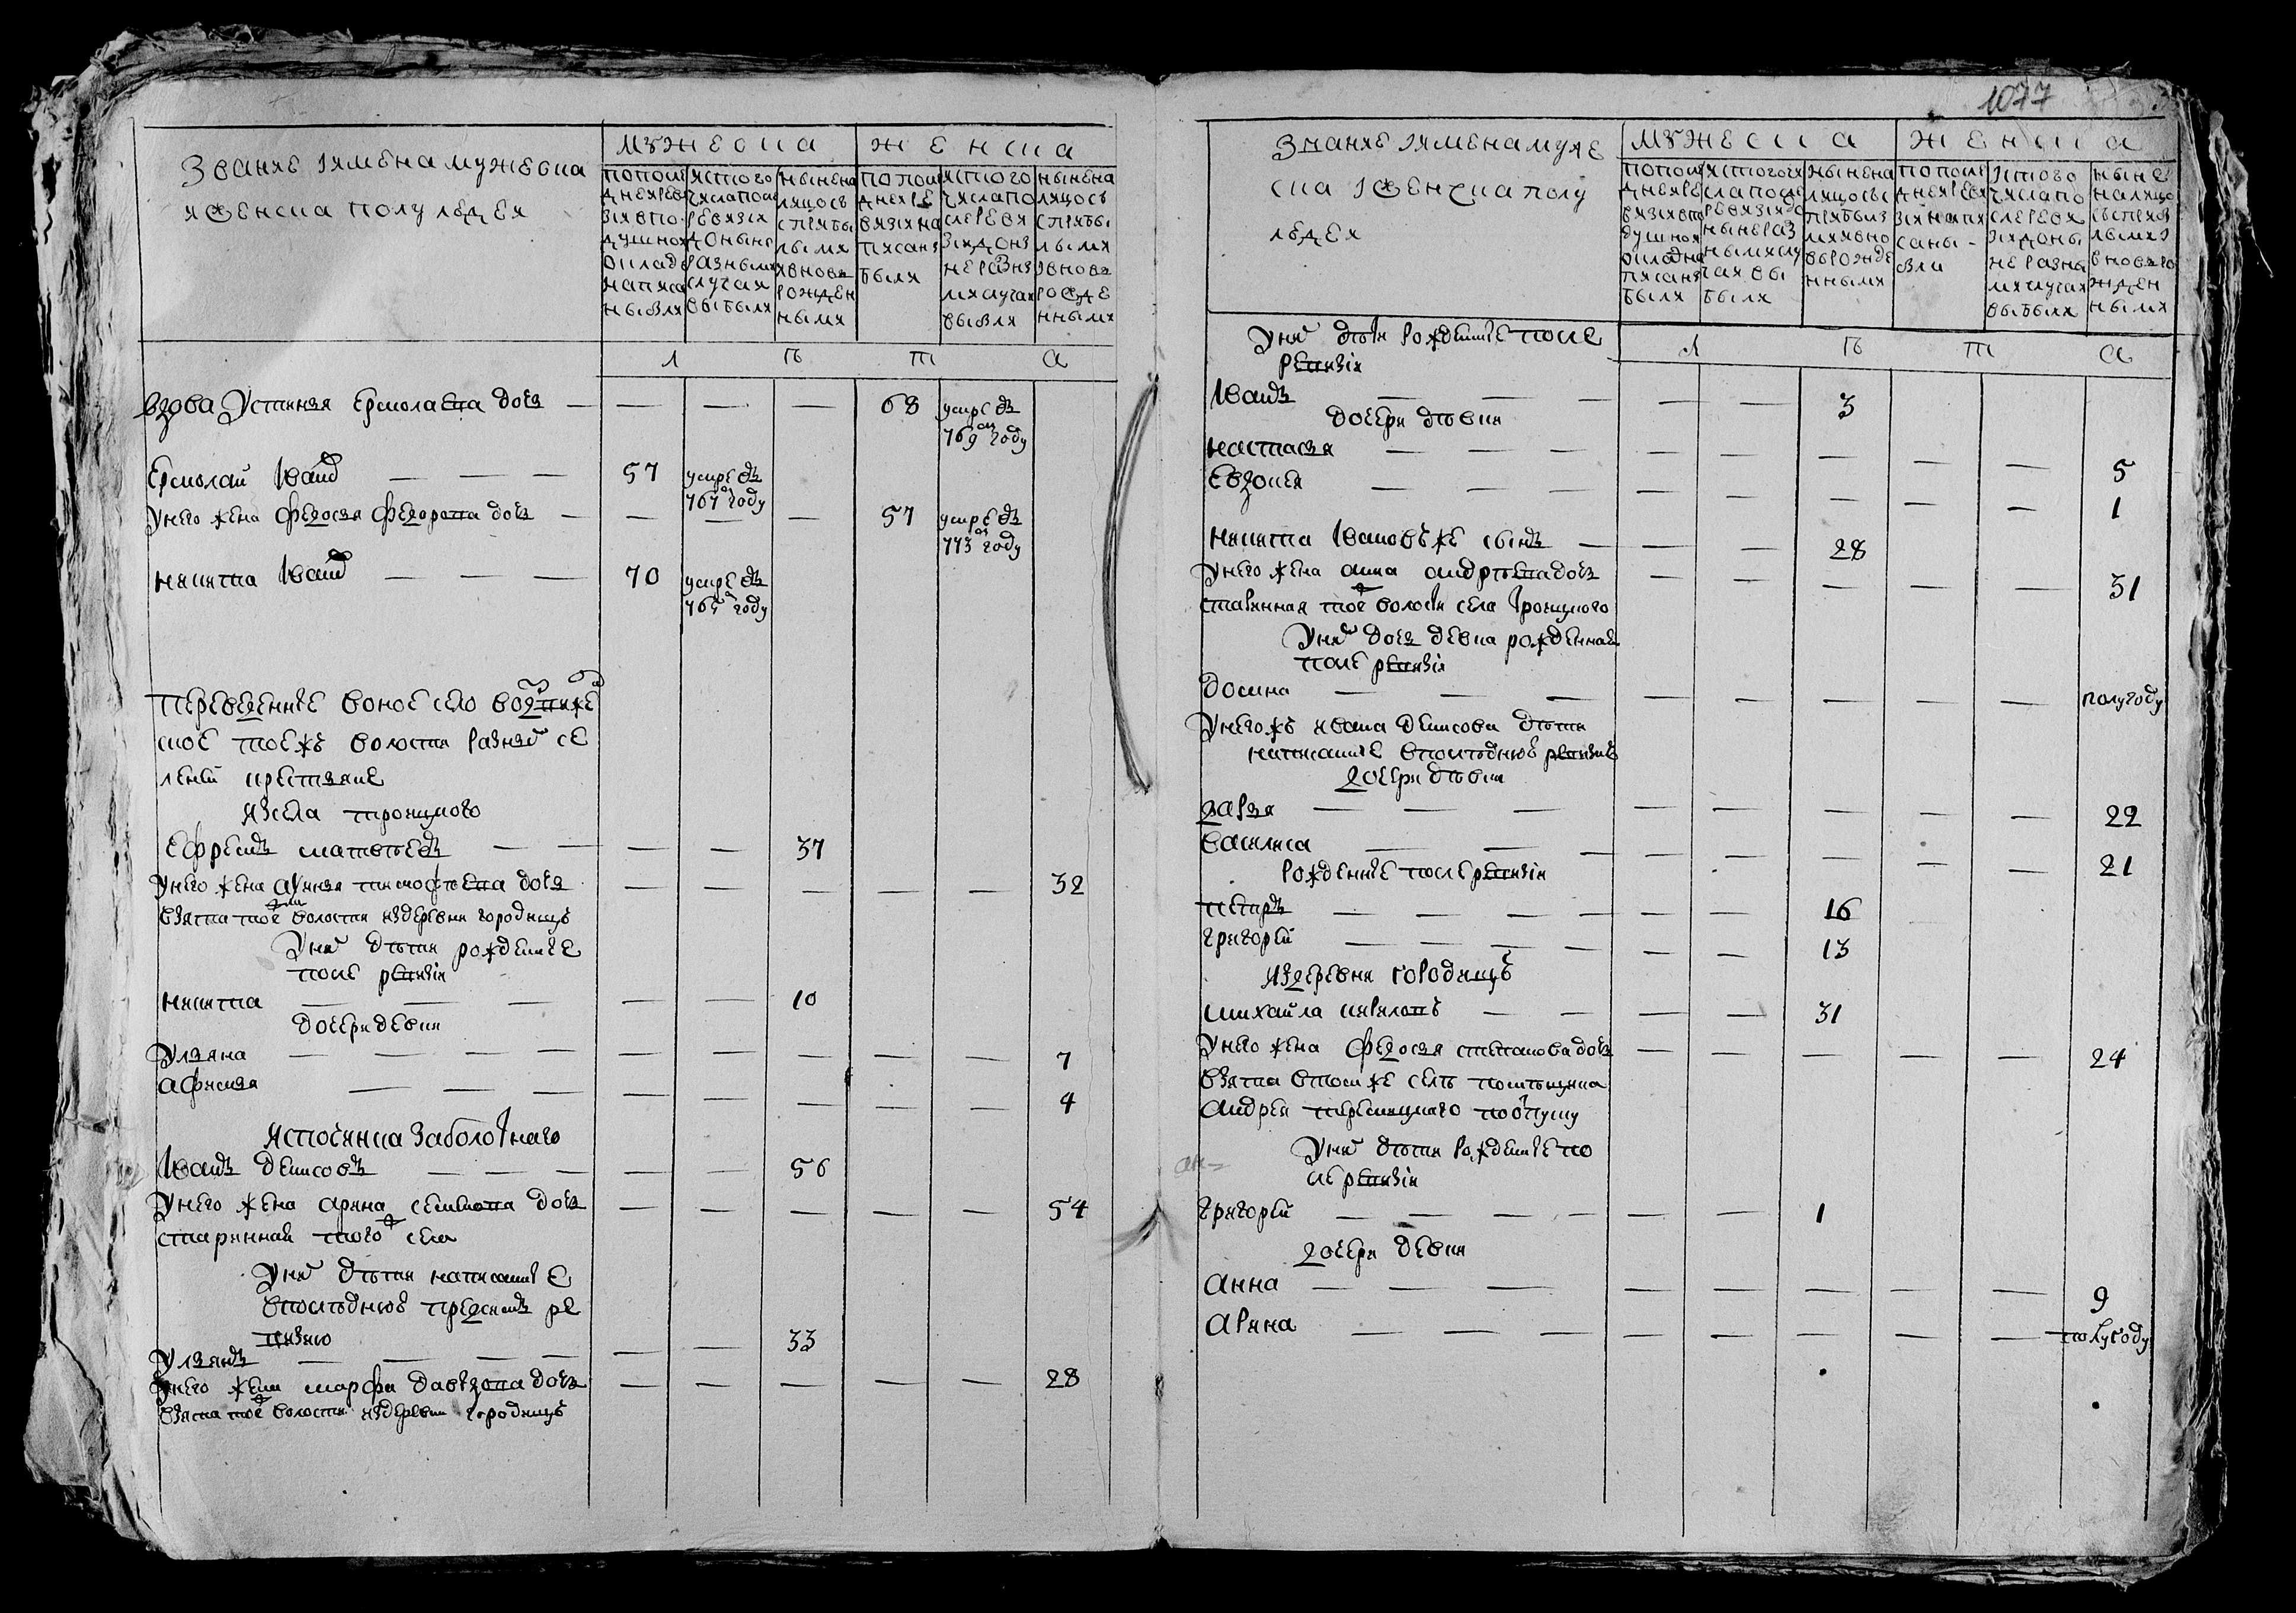 1077
Звание іимена мужеска
иженска полу людеи
мужеска
женска
по последней ревизии в подушной оклад написанных
ис того числа после ревизии доныне разными случаи выбыли
ныне налицо с прибылыми и вновь рожденными
по последней ревизии написаны были
ис того числа после ревизии доныне разными случаи выбыли
ныне налицо с прибылыми и вновь рожденными
л ѣ т а
вдова Устинья Ермолаева дочь — — — — 68 умре въ 769м году
Ермолаи Иванов — — — 57 умре въ 767м году
Унего жена Федосья Федорова дочь — — — — 57 умре въ 773м году
никита Иванов — — — 70 умре въ 765м году
переведенные воное село
тоежъ волости разных се
лении крестьяне
изсела троицкого
Ефремъ матвѣевъ — — — — 37
Унего жена Аринья тимофѣева дочь — — — — — 32
взята тоеж волости издеревни городищъ
Уних дѣти рожденные
после ревизіи
никита — — — — — 10
дочери девки
Ульяна — — — — — — — — — 7
афимья — — — — — — — — 4
Испочинка Заболотнаго
Иванъ денисовъ — — — — — 56
Унего жена арина семионова дочь — — — — — 54
старинная тогож села
Уних дѣти написанные
впоследнюю предсимъ ре
визию
Ульянъ — — — — — — 33
Унего жена марфа давыдова дочь — — — — — 28
взята тоеж волости издеревни городищъ
Звание іимена муже
ска іженска полу
людеи
мужеска
женска
по последней ревизии в подушной оклад написаны были
ис того числа после ревизии доныне разными случаи выбыли
ныне налицо с прибылыми и вновь рожденными
по последней ревизии написаны были
ис того числа после ревизии доныне разными случаи выбыли
ныне налицо с прибылыми и вновь рожденными
Уних дѣти рожденные после
ревизіи
л ѣ т а
Иванъ — — — — — 3
дочери дѣвки
настасья — — — — — — — — 5
Евдокия — — — — — — — — 1
никита Ивановъ же сынъ — — — 28
Унего жена анна андрѣева дочь — — — — — 31
старинная тоеж волости села Троицкого
Уних дочь девка рожденная
после ревизіи
домна — — — — — — — — полугоду
Унегожъ ивана денисова дѣти
написанные впоследнюю ревизию
дочери дѣвки
дарья — — — — — — — — 22
василиса — — — — — — — 21
рожденные после ревизіи
петръ — — — — — — — 16
григореи — — — — — — 13
Издеревни городищъ
михаила кириловъ — — — — 31
Унего жена федосья степанова дочь — — — — — 24
взята втомже селѣ помѣщика
андрея по отпуску
Уних дѣти рожденные по
сле ревизіи
ан=
григореи — — — — — — 1
дочери девки
Анна — — — — — — — — 9
Арина — — — — — — — — полугоду